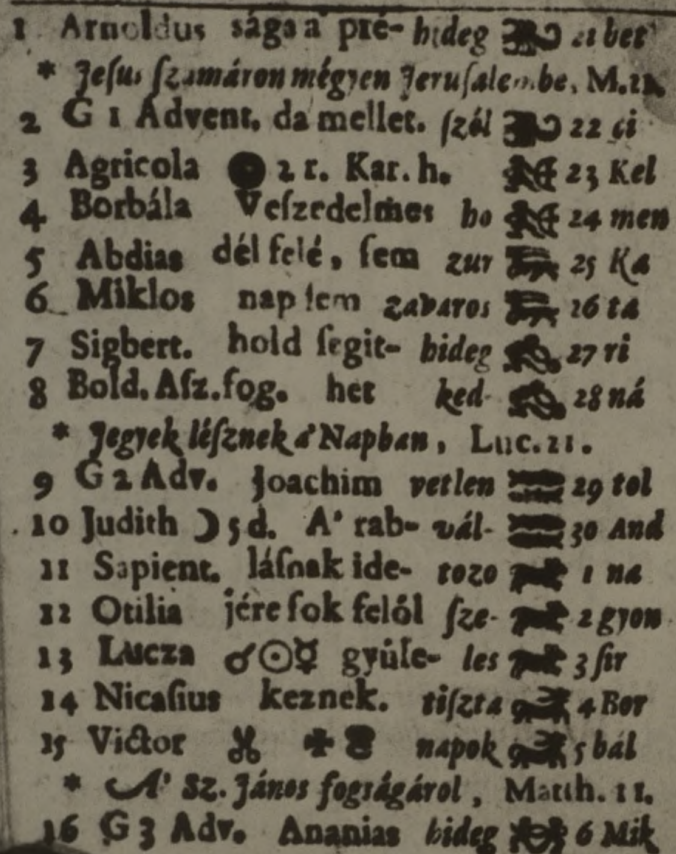 1 Arnoldus sága a' pré- hideg 21 bet
* Jesus szamáron mégyen Jerusalembe, M. 21.
2 G 1 Advent. da mellet. szól 22 ci
3 Agricola ● 2 r. Kar. h. 23 Kel
4 Borbála Veszedelmes ho 24 men
5 Abdias dél felé, sem zur 25 Ka
6 Miklos nap sem zavaros 26 ta
7 Sigbert. hold segit- hideg 27 ri
8 Bold. Asz. fog. het ked- 28 ná
* Jegyek lésznek a' Napban, Luc. 21.
9 G 2 Adv. Joachim vetlen 29 tol
10 Judith ☽ 5 d. A' rab- vál- 30 And
11 Sapient. lásnak ide- tozo 1 na
12 Otilia jére sok felól sze- 2 gyon
13 Lucza ☌☉☿ gyüle- les 3 sir
14 Nicasius keznek. tiszta 4 Bor
15 Victor napok 5 bál
* A' Sz. János fogságárol, Matth. 11.
16 G 3 Adv. Ananias hideg 6 Mik